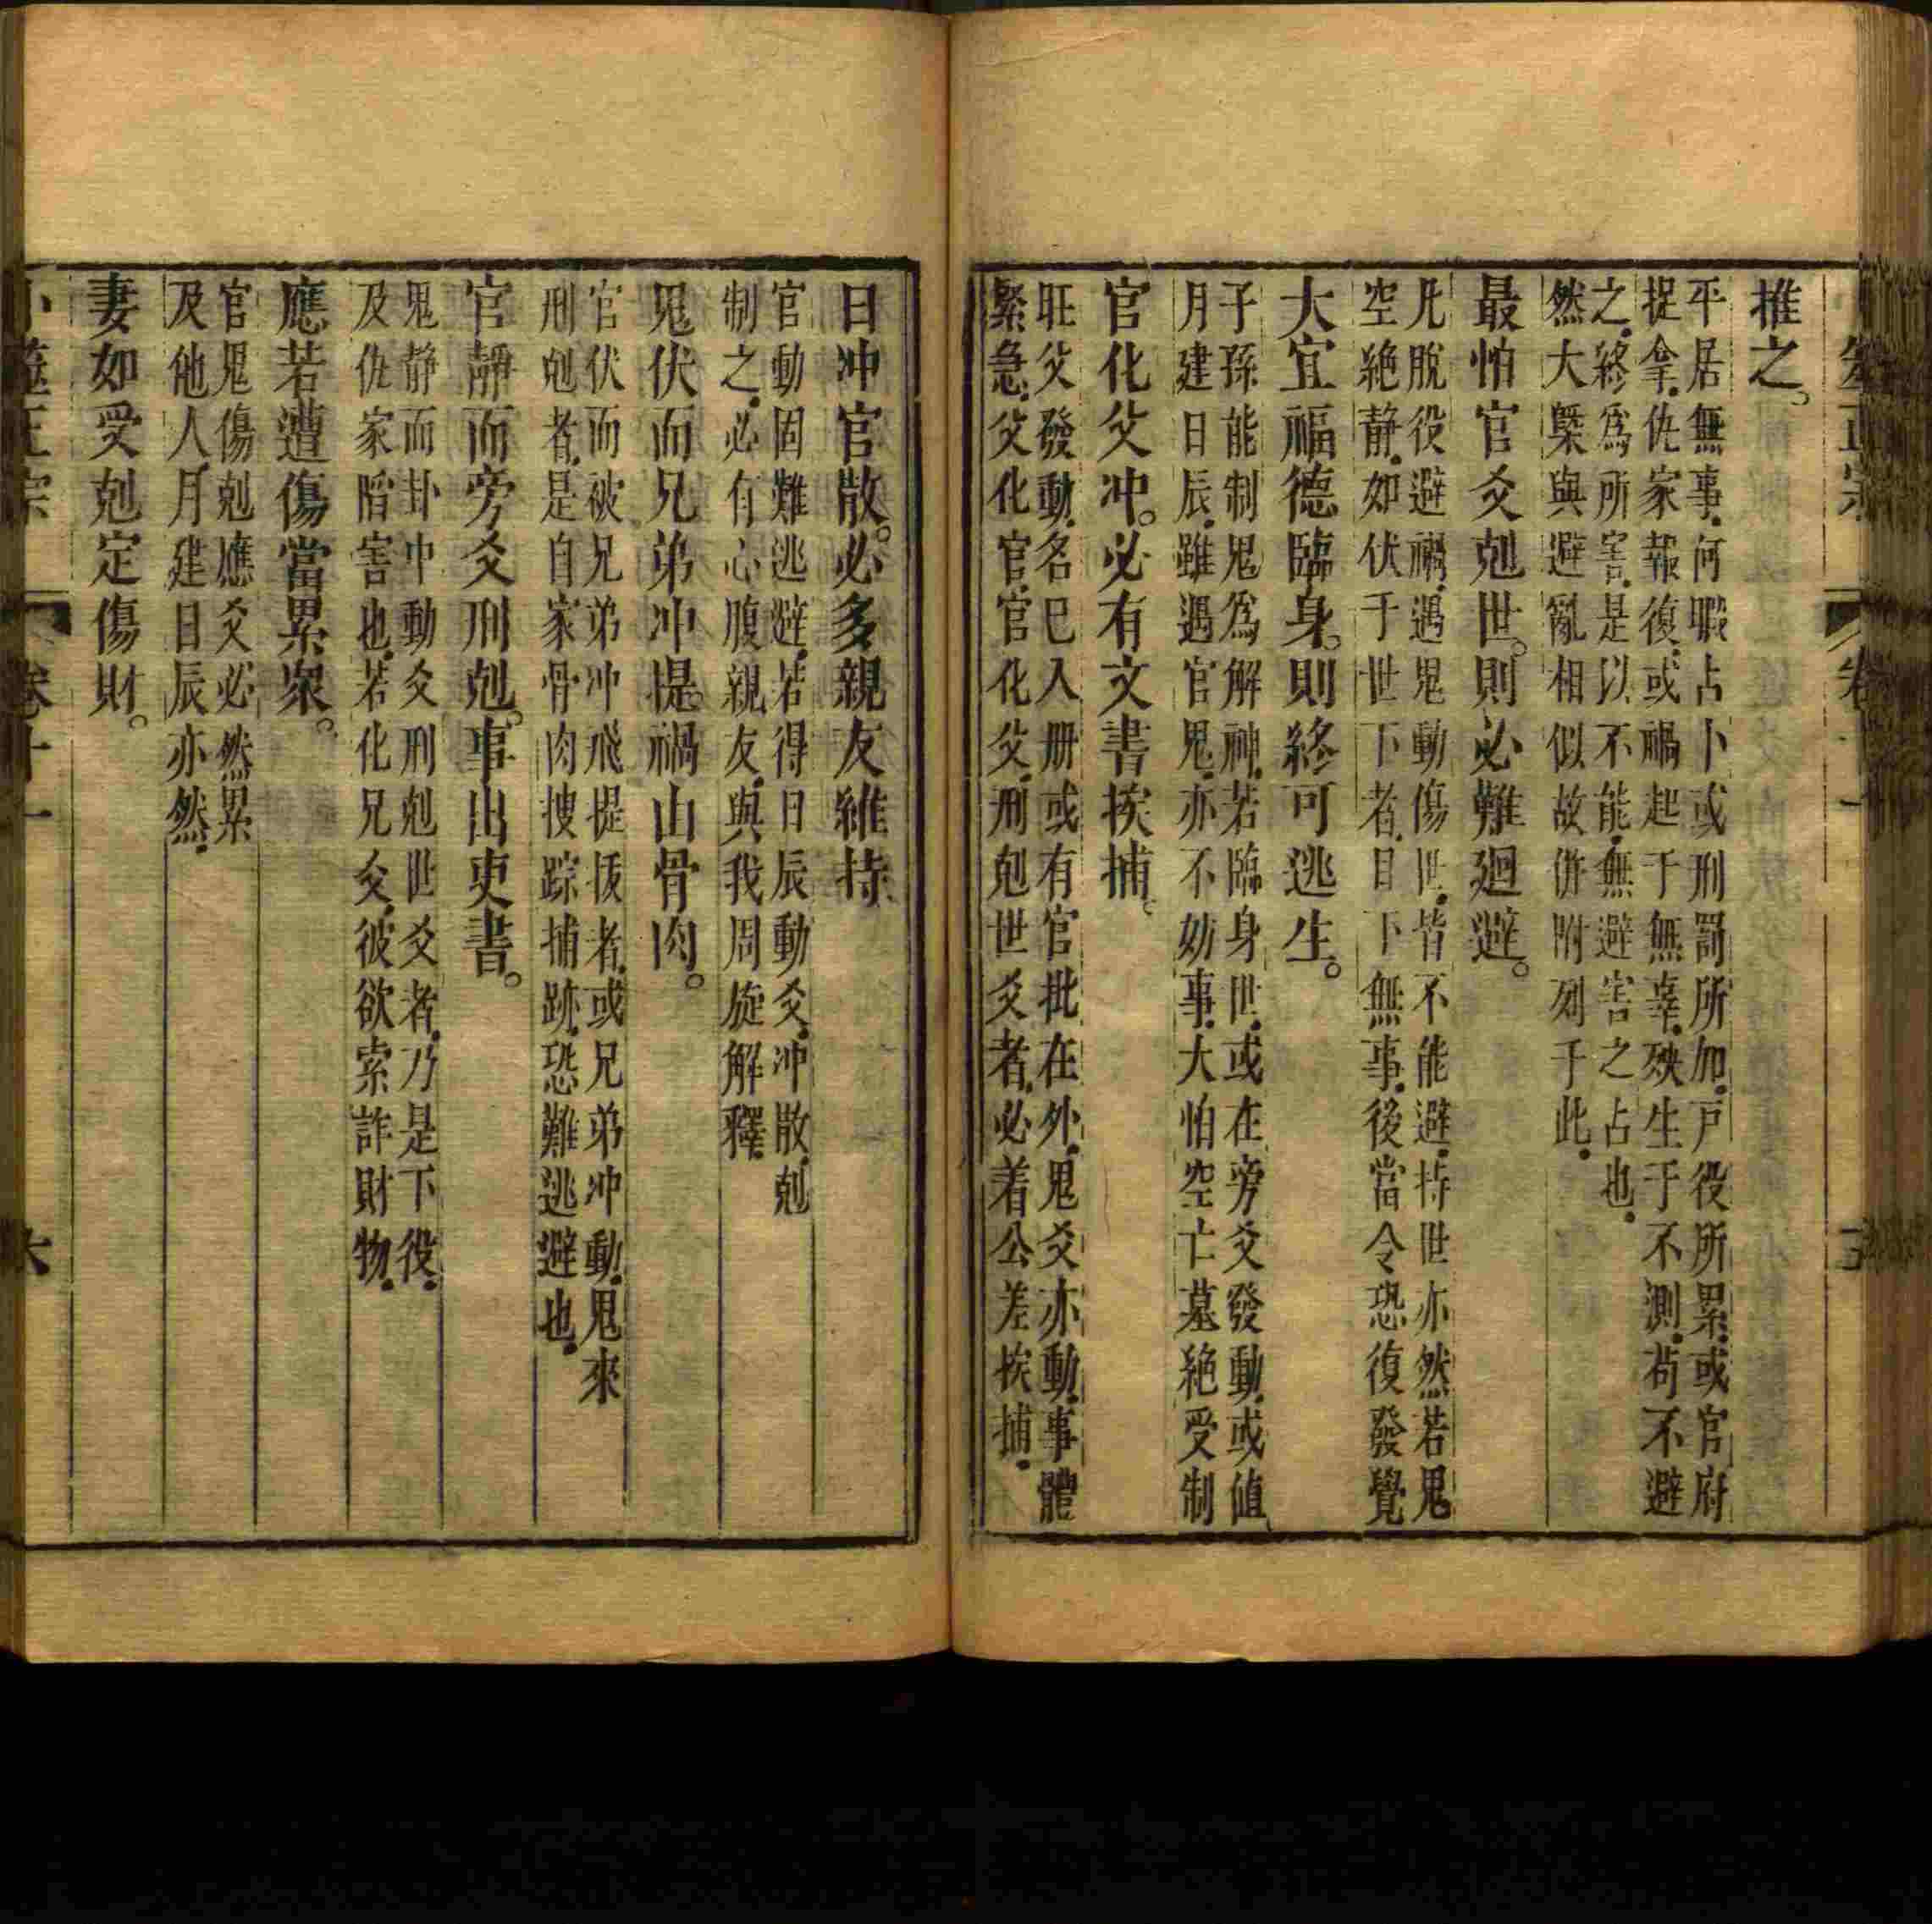 推之。
平居無事.何暇占卜或刑罰所加.戸役所累.或官府
捉拿.仇家報復.或禍起于無辜.殃生于不測.苟不避
之.終爲所害.是以不能.無避害之占也.
然大槩與避亂相似故併附列于此.
最怕官爻剋世。則必難廻避。
凡脫役避禍.遇鬼動傷世.皆不能避.持世亦然若鬼
空絶静.如伏于世下者.目下無事.後當令恐復發覺
大宜福德臨身。則終可逃生。
子孫能制鬼爲解神.若臨身世.或在旁爻發動.或值
月建日辰.雖遇官鬼.亦不妨事.大怕空亡墓絶受制
官化父冲。必有文書挨捕。
旺父發動.名巳入册或有官批在外.鬼爻亦動.事體
緊急.父化官.官化父.刑剋世爻者.必着公差挨捕.
日冲官散。必多親友維持
官動固難逃避.若得日辰動爻.冲散.剋
制之.必有心腹親友.與我周旋解釋.
鬼伏而兄弟冲提。禍由骨肉。
官伏而被兄弟冲飛提拔者.或兄弟冲動.鬼來
刑剋者.是自家骨肉搜踪捕跡.恐難逃避也.
官靜而旁爻刑剋。事出吏書。
鬼静而卦中動爻刑剋世爻者.乃是下役.
及仇家暗害也.若化兄爻.彼欲索詐財物.
應若遭傷當累衆。
官鬼傷剋應爻必然累
及他人.月建日辰亦然.
妻如受剋定傷財。
卜筮正宗 卷十一 六